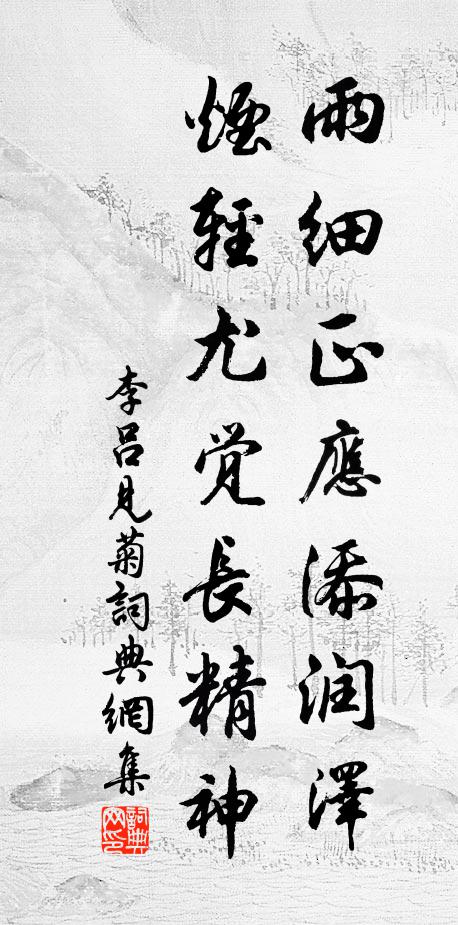 雨細正應添润澤
煙輕尤觉長精神
李吕見菊詞典網集
詞典网印